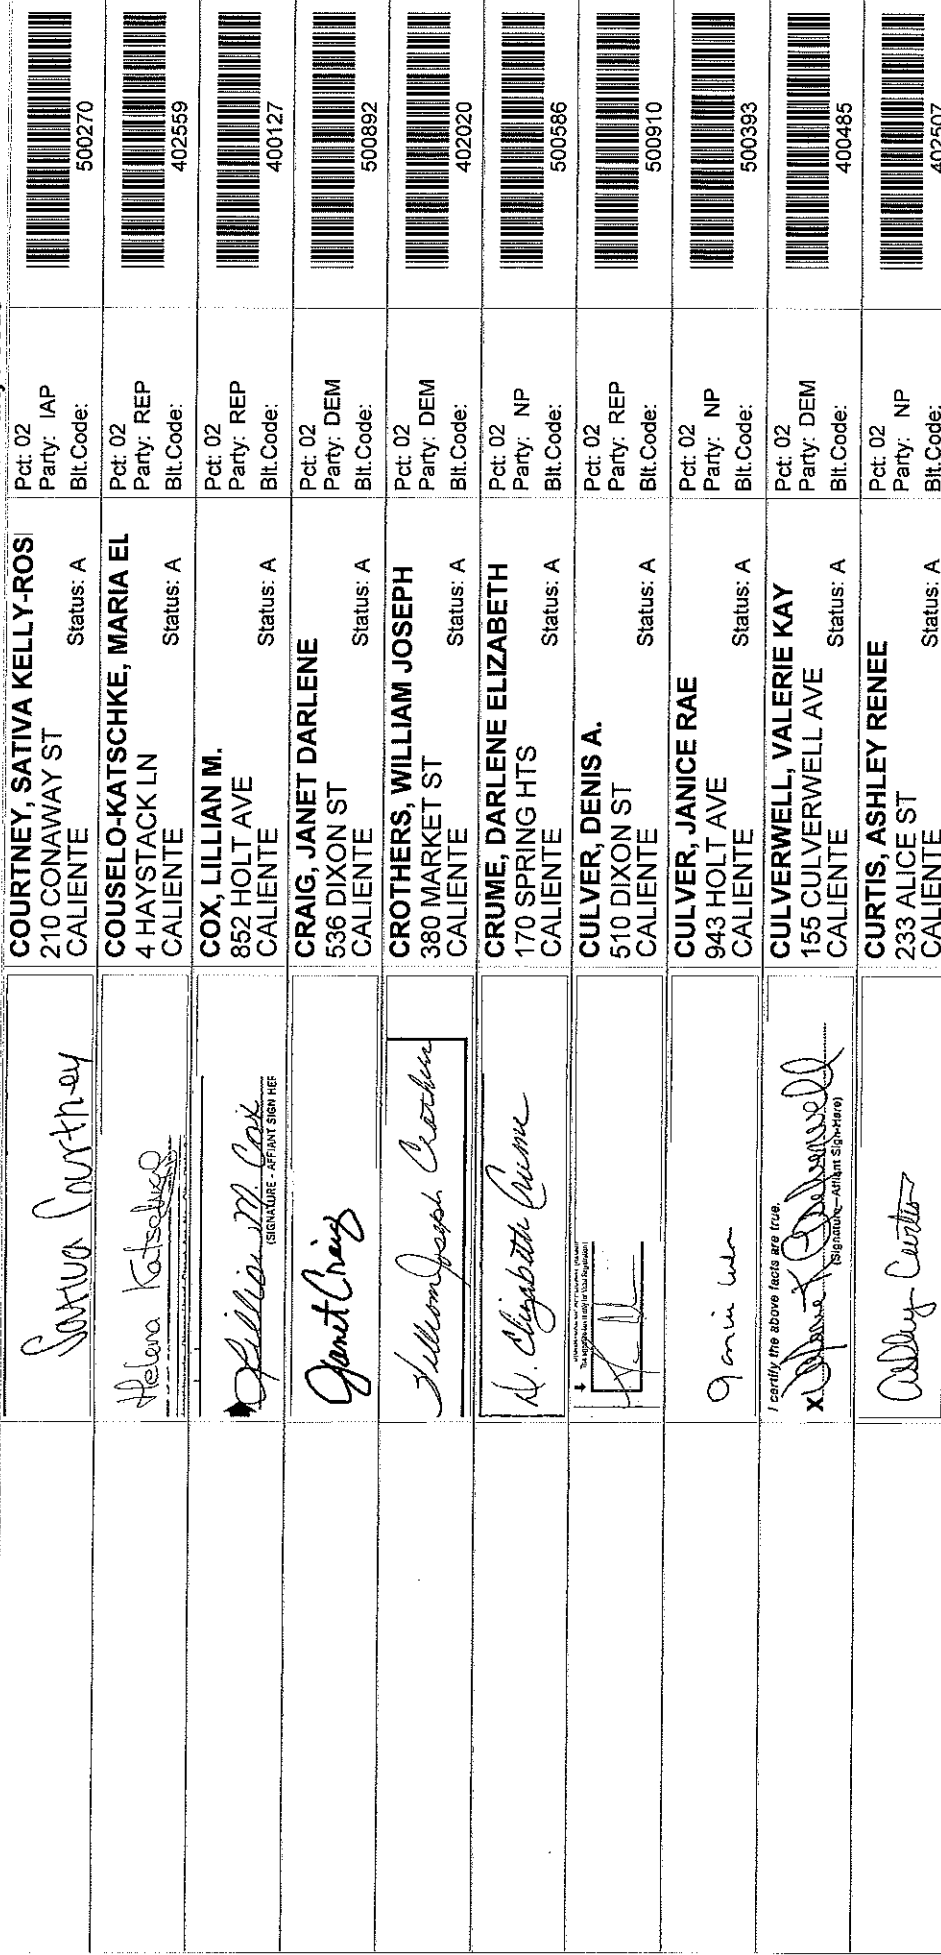 Sativa Courtney
COURTNEY, SATIVA KELLY-ROS
210 CONAWAY ST
CALIENTE Status: A
Pct: 02
Party: IAP
Blt.Code:
500270
Helena Katschke
COUSELO-KATSCHKE, MARIA EL
4 HAYSTACK LN
CALIENTE Status: A
Pct: 02
Party: REP
Blt.Code:
402559
Lillian M. Cox
(SIGNATURE - AFFIANT SIGN HER
COX, LILLIAN M.
852 HOLT AVE
CALIENTE Status: A
Pct: 02
Party: REP
Blt.Code:
400127
Janet Craig
CRAIG, JANET DARLENE
536 DIXON ST
CALIENTE Status: A
Pct: 02
Party: DEM
Blt.Code:
500892
William Joseph Crothers
CROTHERS, WILLIAM JOSEPH
380 MARKET ST
CALIENTE Status: A
Pct: 02
Party: DEM
Blt.Code:
402020
D. Elizabeth Crume
CRUME, DARLENE ELIZABETH
170 SPRING HTS
CALIENTE Status: A
Pct: 02
Party: NP
Blt.Code:
500586
CULVER, DENIS A.
510 DIXON ST
CALIENTE Status: A
Pct: 02
Party: REP
Blt.Code:
500910
Janice
CULVER, JANICE RAE
943 HOLT AVE
CALIENTE Status: A
Pct: 02
Party: NP
Blt.Code:
500393
I certify the above facts are true.
X Valerie K Culverwell
(Signature—Affiant Sign Here)
CULVERWELL, VALERIE KAY
155 CULVERWELL AVE
CALIENTE Status: A
Pct: 02
Party: DEM
Blt.Code:
400485
Ashley Curtis
CURTIS, ASHLEY RENEE
233 ALICE ST
CALIENTE Status: A
Pct: 02
Party: NP
Blt.Code:
402507